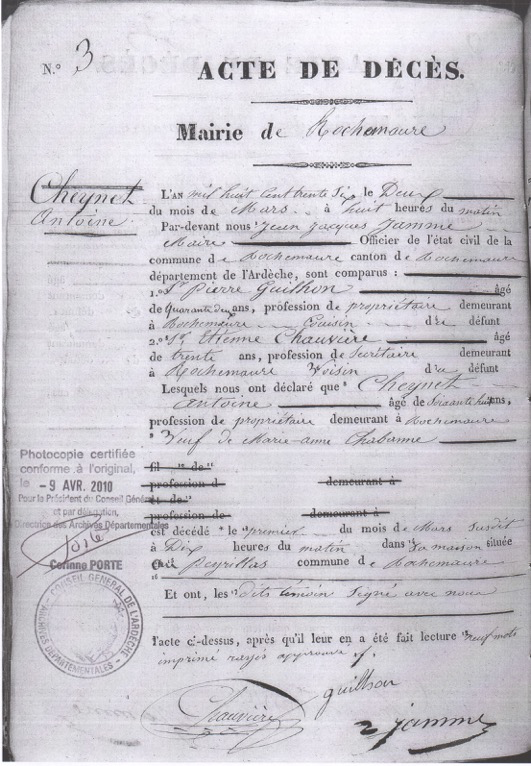 N.º 3
ACTE DE DÉCÈS.
Mairie de Rochemaure
Cheynet
Antoine.
L'AN mil huit cent trente six le Deux
du mois de Mars à huit heures du matin
Par-devant nous Jean Jacques Jamme
Maire Officier de l'état civil de la
commune de Rochemaure canton de Rochemaure
département de l'Ardèche, sont comparus :
1.º Sr Pierre Guilhon âgé
de quarante deux ans, profession de propriétaire demeurant
à Rochemaure Cousin du défunt
2.º Sr Etienne Chauvière âgé
de trente ans, profession de Secrétaire demeurant
à Rochemaure Voisin du défunt
Lesquels nous ont déclaré que Cheynet
Antoine âgé de Soixante huit ans,
profession de propriétaire demeurant à Rochemaure
Veuf de Marie-anne Chabanne
fil de
profession d demeurant à
et de
profession de demeurant à
est décédé le premier du mois de Mars susdit
à Dix heures du matin dans Sa maison située
Peyrillas commune de Rochemaure
Et ont, les dits témoin Signé avec nous
l'acte ci-dessus, après qu'il leur en a été fait lecture neuf mots
imprimé rayés approuvé
Chauvière
guilhon
Jamme
Photocopie certifiée
conforme à l'original,
le - 9 AVR. 2010
Pour le Président du Conseil Général
et par délégation,
Directrice des Archives Départementales
Corinne PORTE
CONSEIL GENERAL DE L'ARDÈCHE
ARCHIVES DEPARTEMENTALES